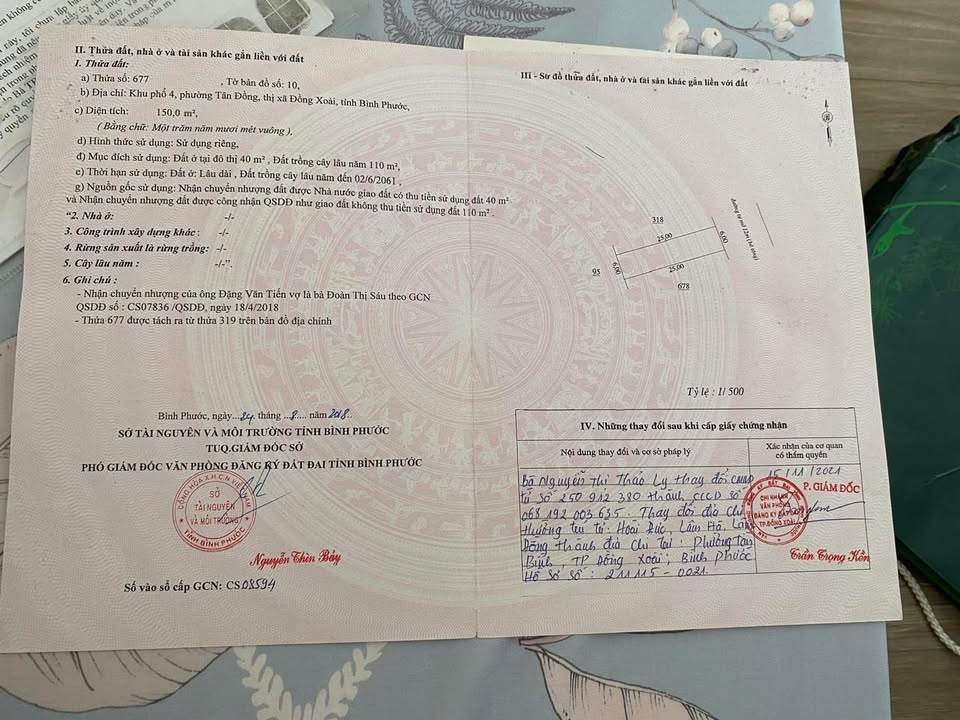 II. Thửa đất, nhà ở và tài sản khác gắn liền với đất
1. Thửa đất:
a) Thửa số: 677 , Tờ bản đồ số: 10,
b) Địa chỉ: Khu phố 4, phường Tân Đồng, thị xã Đồng Xoài, tỉnh Bình Phước,
c) Diện tích: 150,0 m²,
( Bằng chữ: Một trăm năm mươi mét vuông ),
d) Hình thức sử dụng: Sử dụng riêng,
đ) Mục đích sử dụng: Đất ở tại đô thị 40 m² , Đất trồng cây lâu năm 110 m²,
e) Thời hạn sử dụng: Đất ở: Lâu dài , Đất trồng cây lâu năm đến 02/6/2061 ,
g) Nguồn gốc sử dụng: Nhận chuyển nhượng đất được Nhà nước giao đất có thu tiền sử dụng đất 40 m²
và Nhận chuyển nhượng đất được công nhận QSDĐ như giao đất không thu tiền sử dụng đất 110 m² .
“2. Nhà ở: -/-
3. Công trình xây dựng khác : -/-
4. Rừng sản xuất là rừng trồng: -/-
5. Cây lâu năm : -/-”.
6. Ghi chú :
- Nhận chuyển nhượng của ông Đặng Văn Tiến vợ là bà Đoàn Thị Sáu theo GCN
QSDĐ số : CS07836 /QSDĐ, ngày 18/4/2018
- Thửa 677 được tách ra từ thửa 319 trên bản đồ địa chính
Bình Phước, ngày...24. tháng ..8.... năm 2018..
SỞ TÀI NGUYÊN VÀ MÔI TRƯỜNG TỈNH BÌNH PHƯỚC
TUQ.GIÁM ĐỐC SỞ
PHÓ GIÁM ĐỐC VĂN PHÒNG ĐĂNG KÝ ĐẤT ĐAI TỈNH BÌNH PHƯỚC
CỘNG HÒA X.H.C.N VIỆT NAM
SỞ
TÀI NGUYÊN
VÀ MÔI TRƯỜNG
TỈNH BÌNH PHƯỚC
Nguyễn Thìn Bảy
Số vào sổ cấp GCN: CS 08594
III - Sơ đồ thửa đất, nhà ở và tài sản khác gắn liền với đất
318
25,00
6,00
95
6,00
25,00
678
Tỷ lệ : 1/ 500
IV. Những thay đổi sau khi cấp giấy chứng nhận
Nội dung thay đổi và cơ sở pháp lý
Xác nhận của cơ quan
có thẩm quyền
Bà Nguyễn Thị Thảo Ly thay đổi CMND
từ số 250 912 380 thành CCCD số
068 192 003 635. Thay đổi địa chỉ
thường trú từ: Hoài Đức, Lâm Hà, Lâm
Đồng thành địa chỉ tại: Phường Tân
Bình, TP Đồng Xoài, Bình Phước
Hồ sơ số : 211115-0021.
15/11/2021
P. GIÁM ĐỐC
CHI NHÁNH
VĂN PHÒNG
ĐĂNG KÝ ĐẤT ĐAI
TP.ĐỒNG XOÀI
Trần Trọng Kền